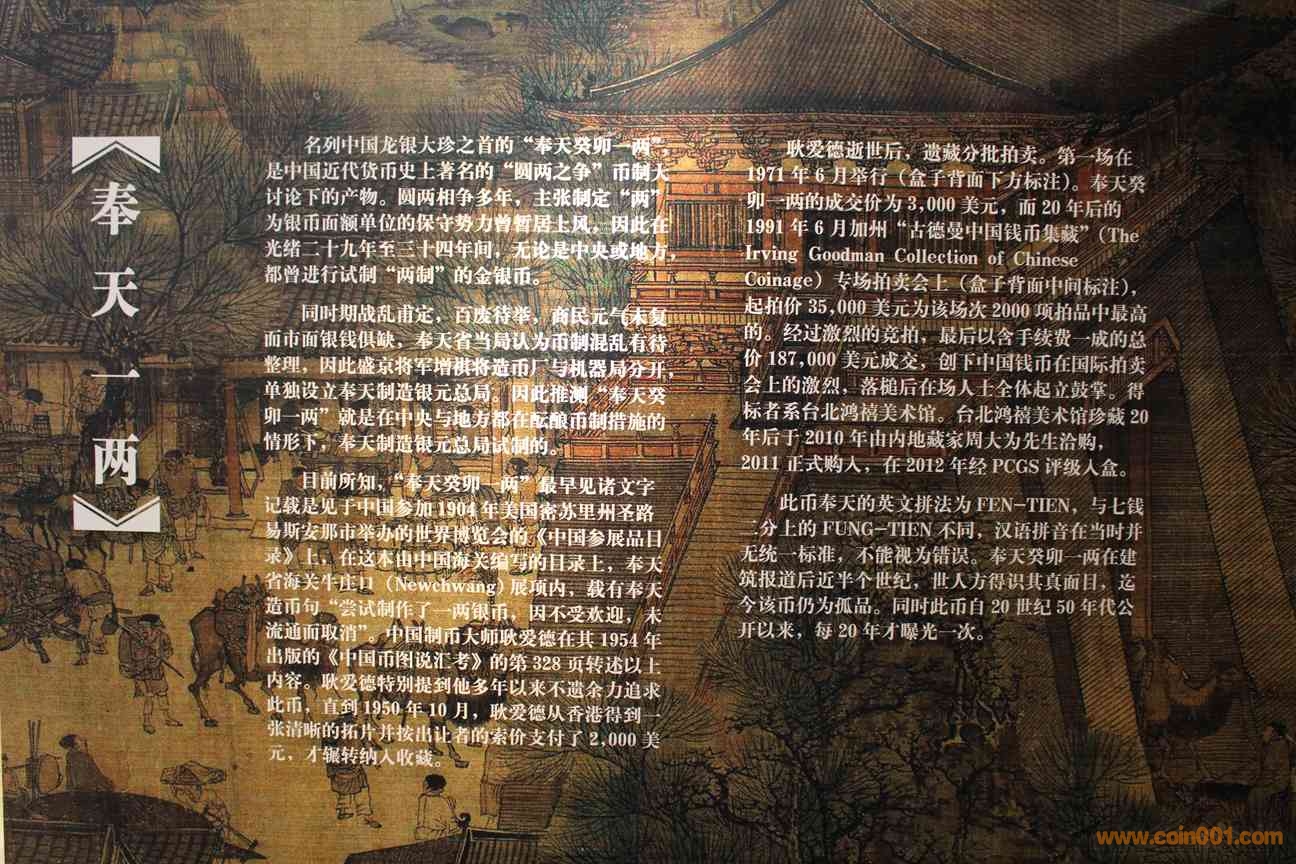 《奉天一两》
名列中国龙银大珍之首的“奉天癸卯一两”，
是中国近代货币史上著名的“圆两之争”币制大
讨论下的产物。圆两相争多年，主张制定“两”
为银币面额单位的保守势力曾暂居上风，因此在
光绪二十九年至三十四年间，无论是中央或地方，
都曾进行试制“两制”的金银币。
同时期战乱甫定，百废待举，商民元气未复
而市面银钱俱缺，奉天省当局认为币制混乱有待
整理，因此盛京将军增祺将造币厂与机器局分开，
单独设立奉天制造银元总局。因此推测“奉天癸
卯一两”就是在中央与地方都在酝酿币制措施的
情形下，奉天制造银元总局试制的。
目前所知，“奉天癸卯一两”最早见诸文字
记载是见于中国参加1904年美国密苏里州圣路
易斯安那市举办的世界博览会的《中国参展品目
录》上，在这本由中国海关编写的目录上，奉天
省海关牛庄口（Newchwang）展项内，载有奉天
造币句“尝试制作了一两银币，因不受欢迎，未
流通而取消”。中国制币大师耿爱德在其1954年
出版的《中国币图说汇考》的第328页转述以上
内容。耿爱德特别提到他多年以来不遗余力追求
此币，直到1950年10月，耿爱德从香港得到一
张清晰的拓片并按出让者的索价支付了2,000美
元，才辗转纳入收藏。
耿爱德逝世后，遗藏分批拍卖。第一场在
1971年6月举行（盒子背面下方标注）。奉天癸
卯一两的成交价为3,000美元，而20年后的
1991年6月加州“古德曼中国钱币集藏”（The
Irving Goodman Collection of Chinese
Coinage）专场拍卖会上（盒子背面中间标注），
起拍价35,000美元为该场次2000项拍品中最高
的。经过激烈的竞拍，最后以含手续费一成的总
价187,000美元成交，创下中国钱币在国际拍卖
会上的激烈，落槌后在场人士全体起立鼓掌。得
标者系台北鸿禧美术馆。台北鸿禧美术馆珍藏20
年后于2010年由内地藏家周大为先生洽购，
2011正式购入，在2012年经PCGS评级入盒。
此币奉天的英文拼法为FEN-TIEN，与七钱
二分上的FUNG-TIEN不同，汉语拼音在当时并
无统一标准，不能视为错误。奉天癸卯一两在建
筑报道后近半个世纪，世人方得识其真面目，迄
今该币仍为孤品。同时此币自20世纪50年代公
开以来，每20年才曝光一次。
www.coin001.com